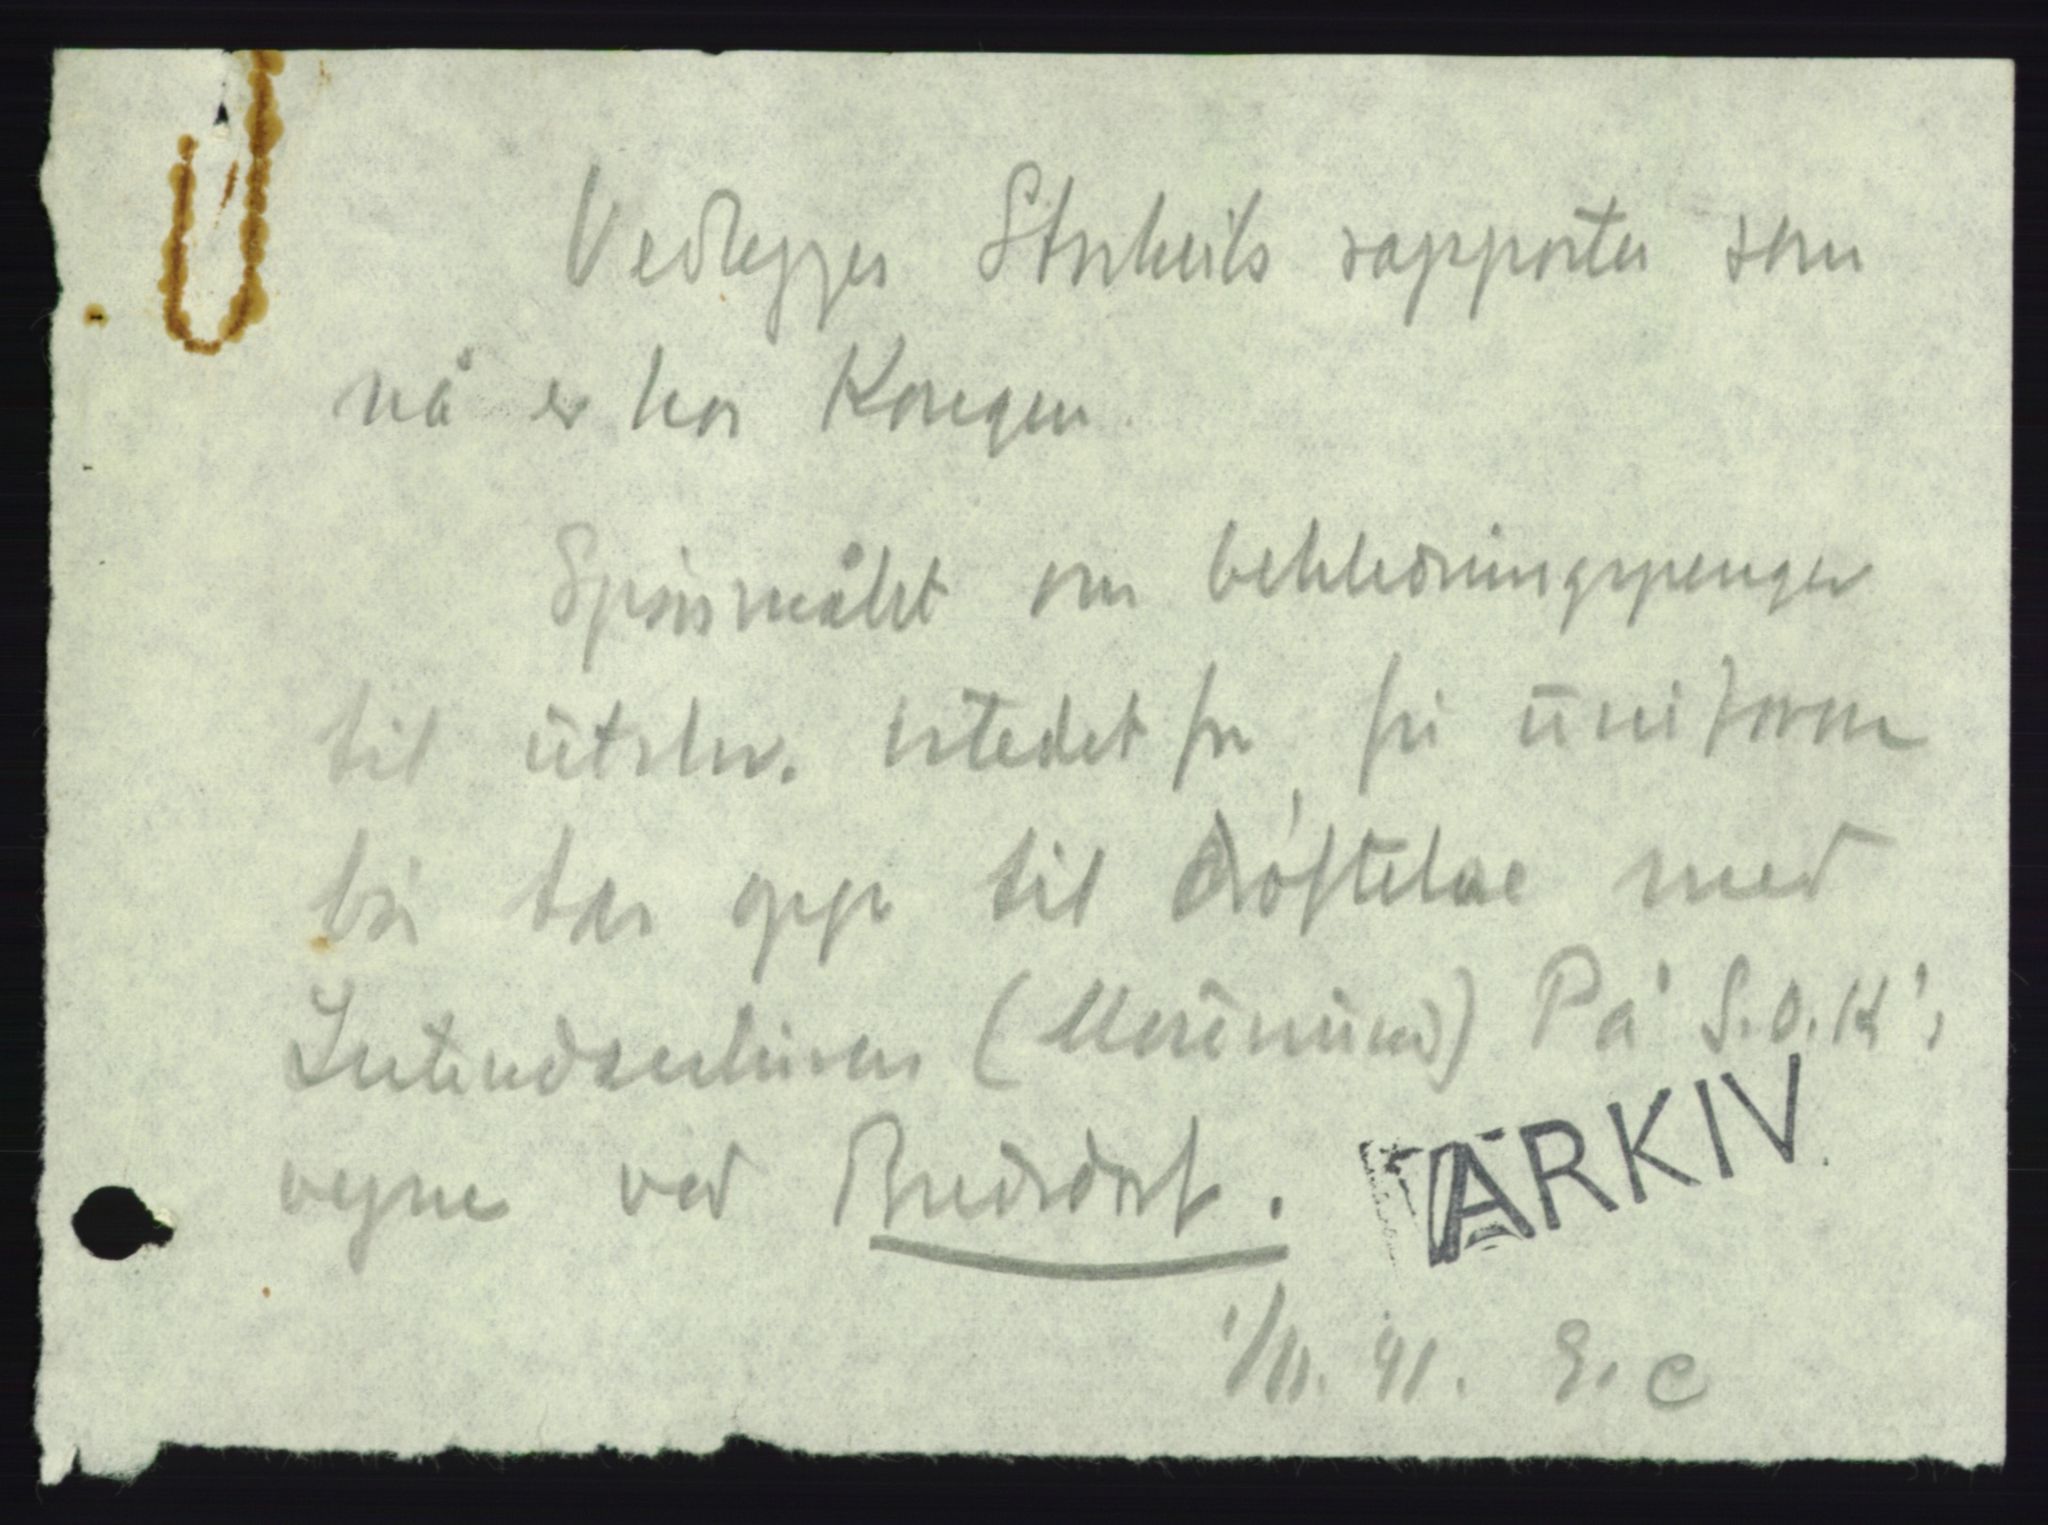 Vedlegges Storheils rapporter som
nå er hos Kongen.
Spörsmålet om bekledningspenger
til utskr. istedet for fri uniform
bör tas opp til dröftelse med
Intendanturen (Mosēnünd) På S.O.K's
vegne ved Bredsdorf.
ARKIV
1/11. 41. E. C